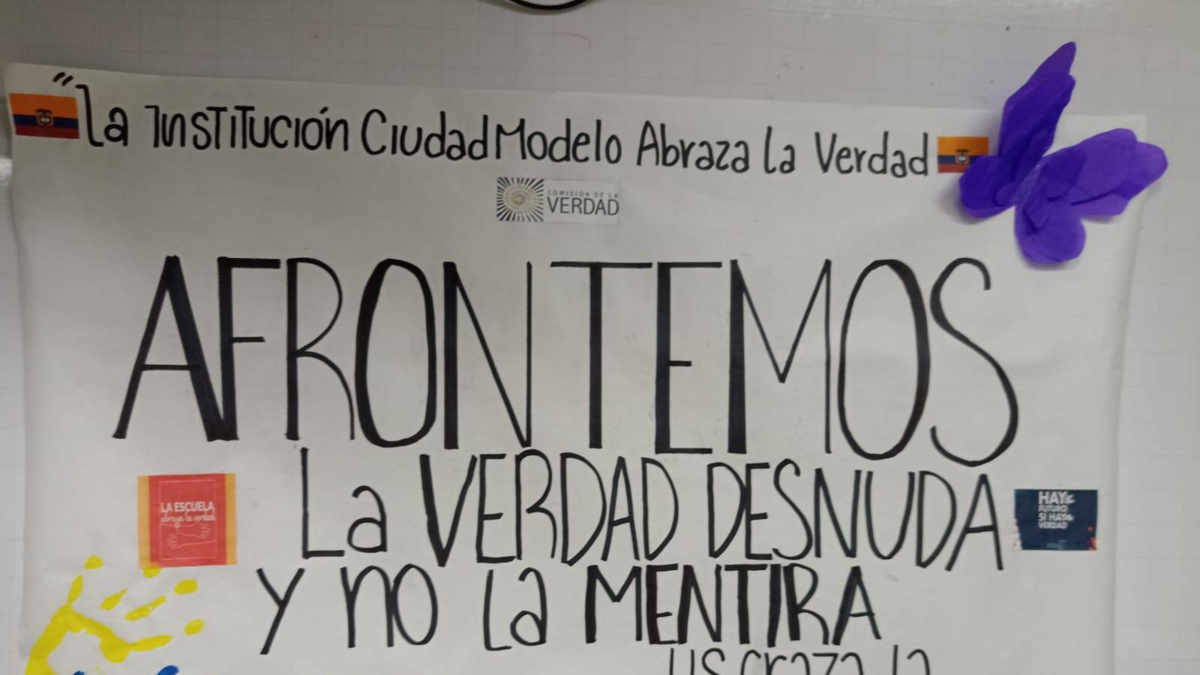 "La Institución Ciudad Modelo Abraza la Verdad
COMISIÓN DE LA
VERDAD
AFRONTEMOS
La VERDAD DESNUDA
LA ESCUELA
abraza la verdad
HAY
FUTURO
SI HAY
VERDAD
y no la MENTIRA
la